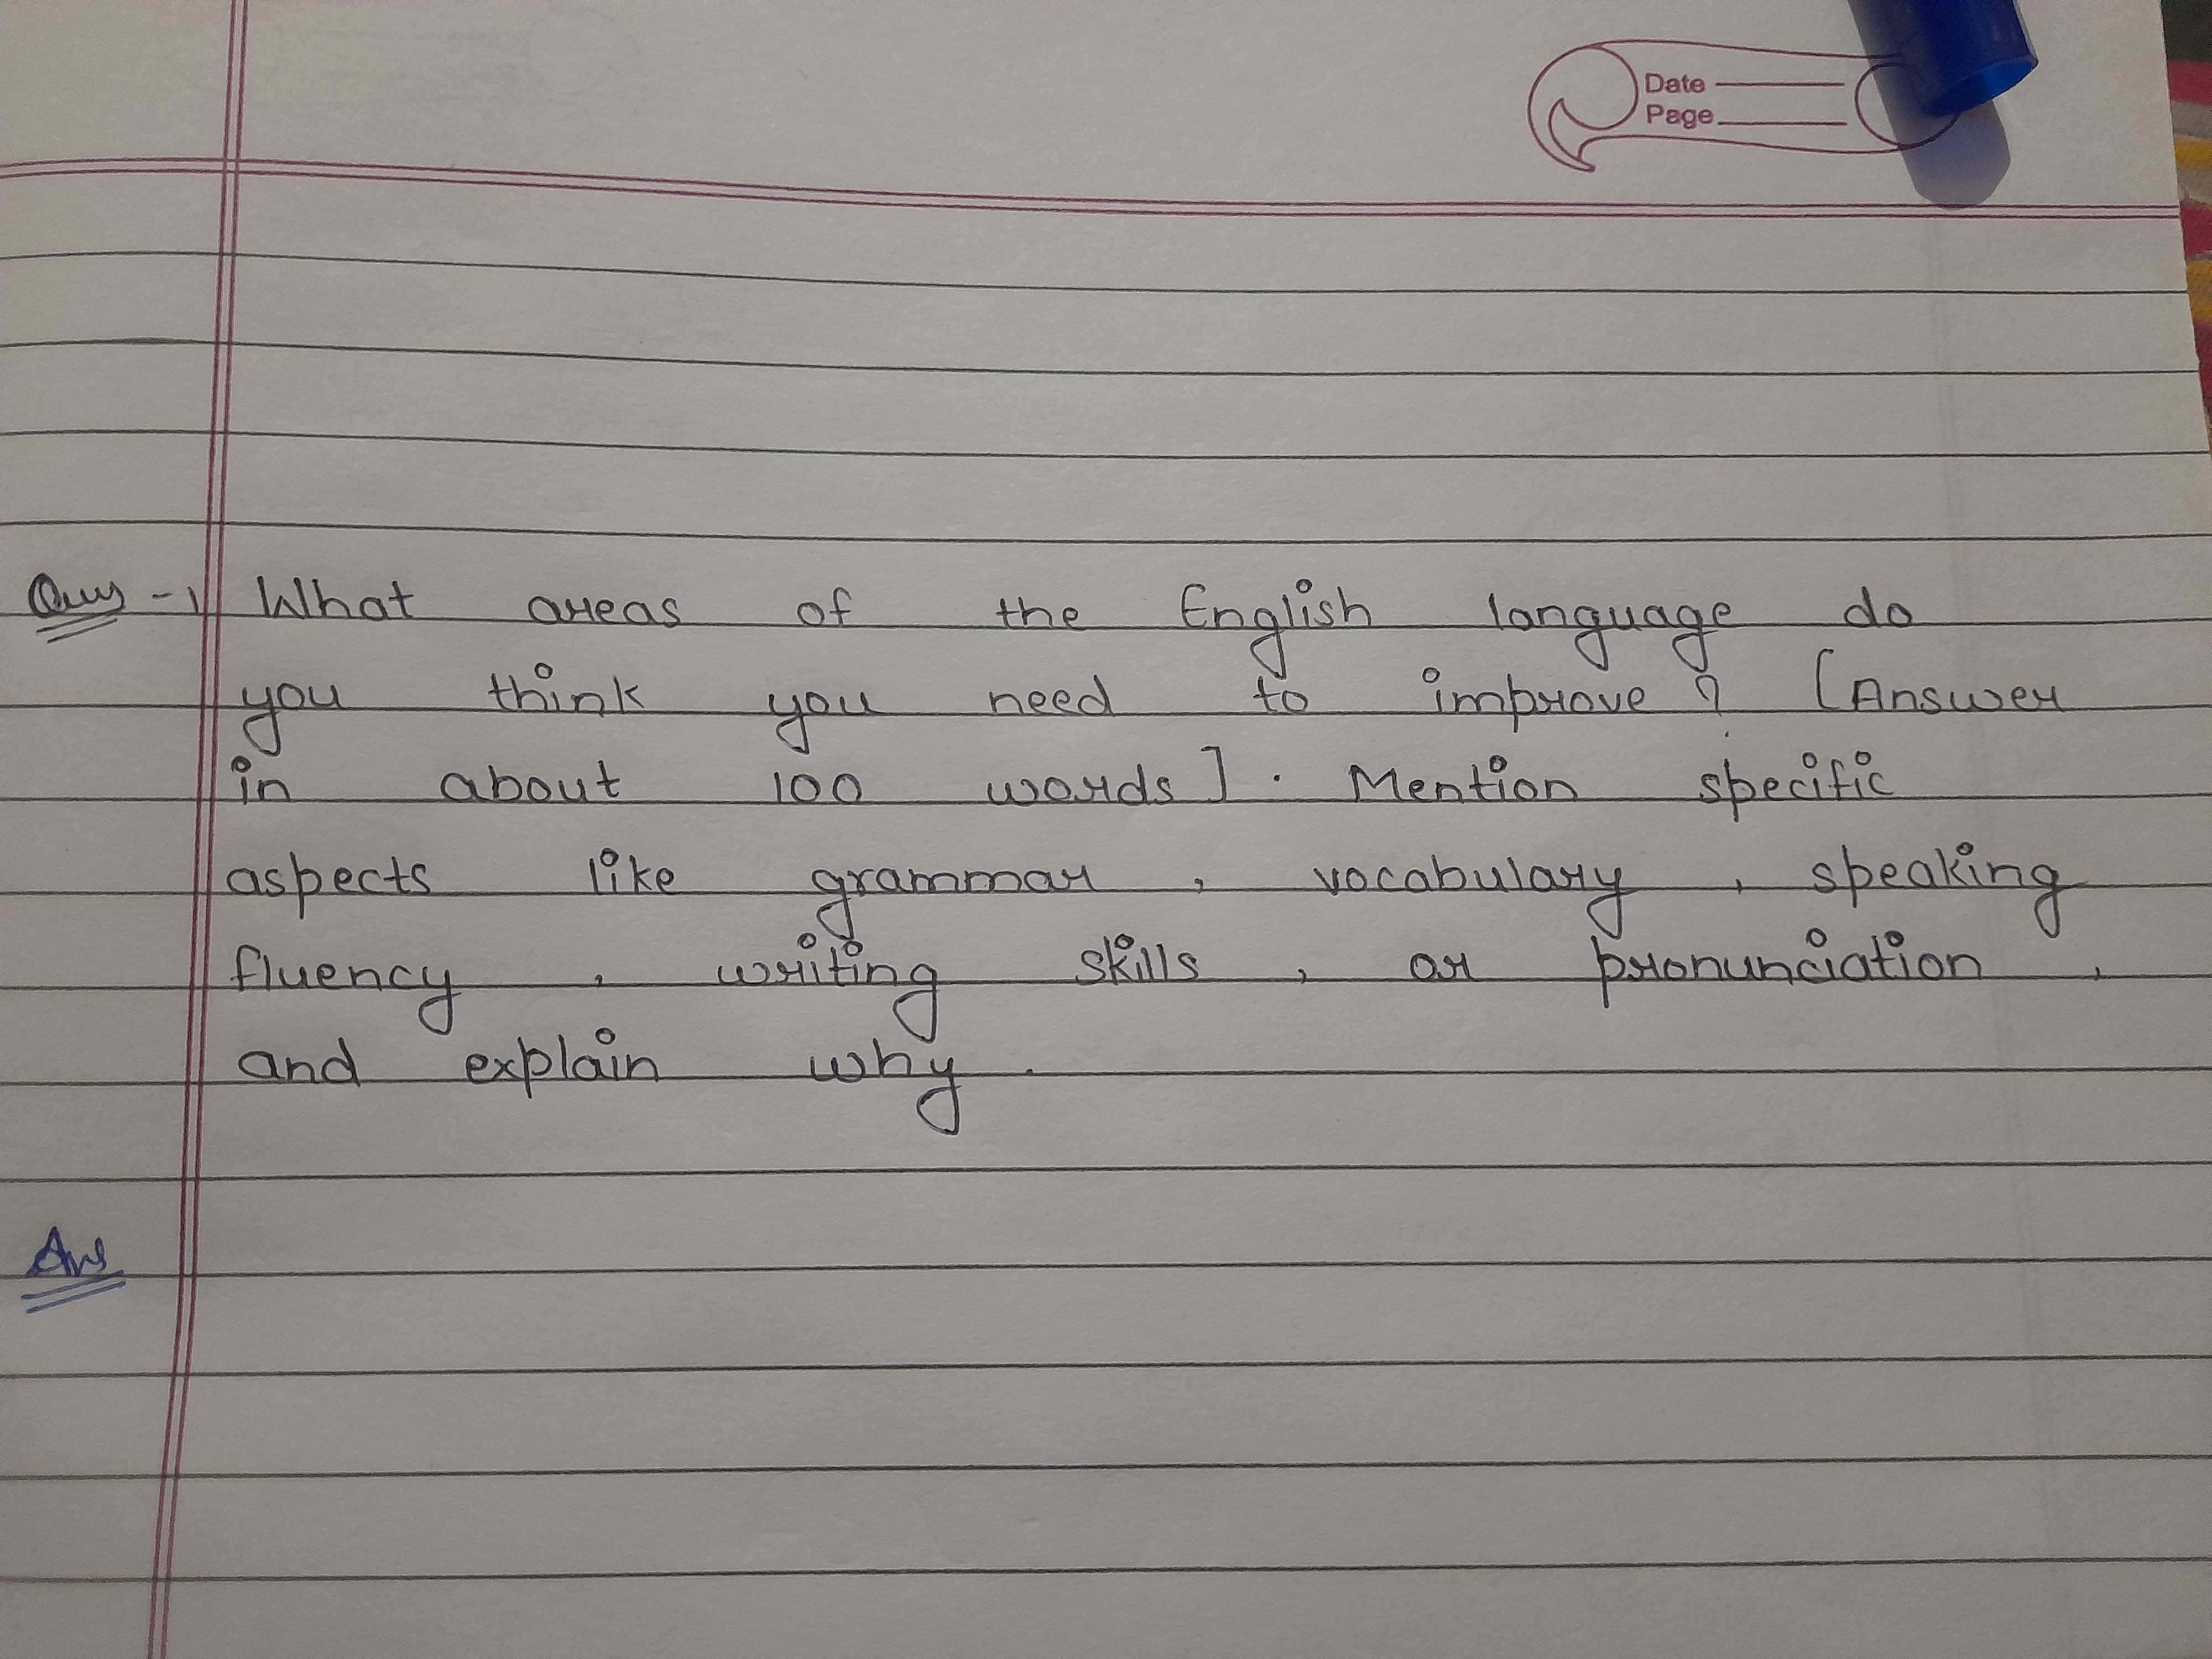 Date
Page
Ques-1 What areas of the English language do
you think you need to improve? [Answer
in about 100 words]. Mention specific
aspects like grammar, vocabulary, speaking
fluency, writing skills, or pronunciation,
and explain why.
Ans